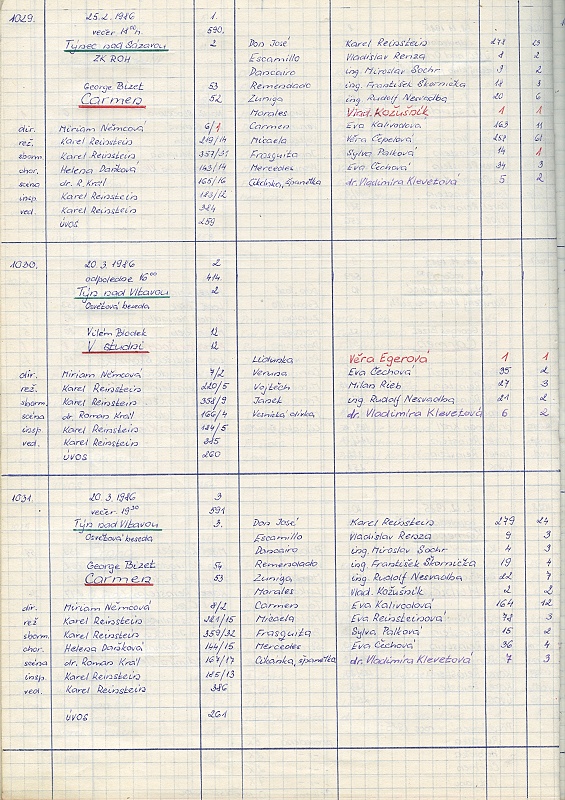 1029. 25.2.1986 1.
večer 19⁰⁰ h. 590.
Týnec nad Sázavou 2 Don José Karel Reinstein 278 23
ZK ROH Escamillo Vladislav Renza 8 2
Dancairo ing. Miroslav Sochr 3 2
George Bizet 53 Remendado ing. František Škornička 18 3
Carmen 52 Zuniga ing. Rudolf Nesvadba 20 6
Morales Vlad. Kožušník 1 1
dir. Miriam Němcová 6/1 Carmen Eva Kalivodová 163 11
rež. Karel Reinstein 219/14 Micaela Věra Čepelová 257 61
sborm. Karel Reinstein 357/31 Frasquita Sylva Palková 14 1
chor. Helena Daňková 143/14 Mercedes Eva Čechová 34 3
scéna dr. R. Král 165/16 Cikánka, španělka dr. Vladimíra Klevetová 5 2
insp. Karel Reinstein 183/12
ved. Karel Reinstein 384
ÚVOS 259
1030. 20.3.1986 2
odpoledne 16⁰⁰ 414.
Týn nad Vltavou 2
Osvětová beseda
Vilém Blodek 12
V studni 12
Lidunka Věra Egerová 1 1
dir. Miriam Němcová 7/2 Veruna Eva Čechová 35 2
rež. Karel Reinstein 220/5 Vojtěch Milan Rieb 27 3
sborm. Karel Reinstein 358/9 Janek ing Rudolf Nesvadba 21 2
scéna dr. Roman Král 166/4 Vesnická dívka dr. Vladimíra Klevetová 6 2
insp. Karel Reinstein 184/5
ved. Karel Reinstein 385
ÚVOS 260
1031. 20.3.1986 3
večer 19³⁰ 591
Týn nad Vltavou 3. Don José Karel Reinstein 279 24
Osvětová beseda Escamillo Vladislav Renza 9 3
Dancairo ing. Miroslav Sochr 4 3
George Bizet 54 Remendado ing. František Škornička 19 4
Carmen 53 Zuniga ing. Rudolf Nesvadba 22 7
Morales Vlad. Kožušník 2 2
dir. Miriam Němcová 8/2 Carmen Eva Kalivodová 164 12
rež Karel Reinstein 221/15 Micaela Eva Reinsteinová 78 3
sborm. Karel Reinstein 359/32 Frasquita Sylva Palková 15 2
chor. Helena Daňková 144/15 Mercedes Eva Čechová 36 4
scéna dr. Roman Král 167/17 Cikánka, španělka dr. Vladimíra Klevetová 7 3
insp. Karel Reinstein 185/13
ved. Karel Reinstein 386
ÚVOS 261